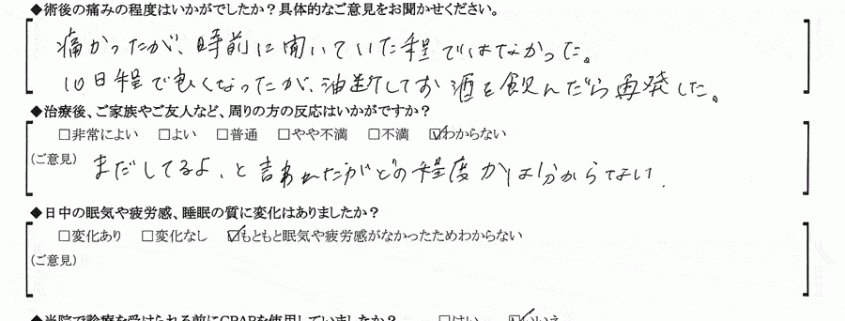 ◆術後の痛みの程度はいかがでしたか？具体的なご意見をお聞かせください。
痛かったが、時前に聞いていた程ではなかった。
10日程で良くなったが、油断してお酒を飲んだら再発した。
◆治療後、ご家族やご友人など、周りの方の反応はいかがですか？
□非常によい □よい □普通 □やや不満 □不満 ☑わからない
(ご意見) まだしてるよ、と言われたがどの程度かは分からない.
◆日中の眠気や疲労感、睡眠の質に変化はありましたか？
□変化あり □変化なし ☑もともと眠気や疲労感がなかったためわからない
(ご意見)
◆当院で診療を受けられる前にCPAPを使用していましたか？ □はい ☑いいえ